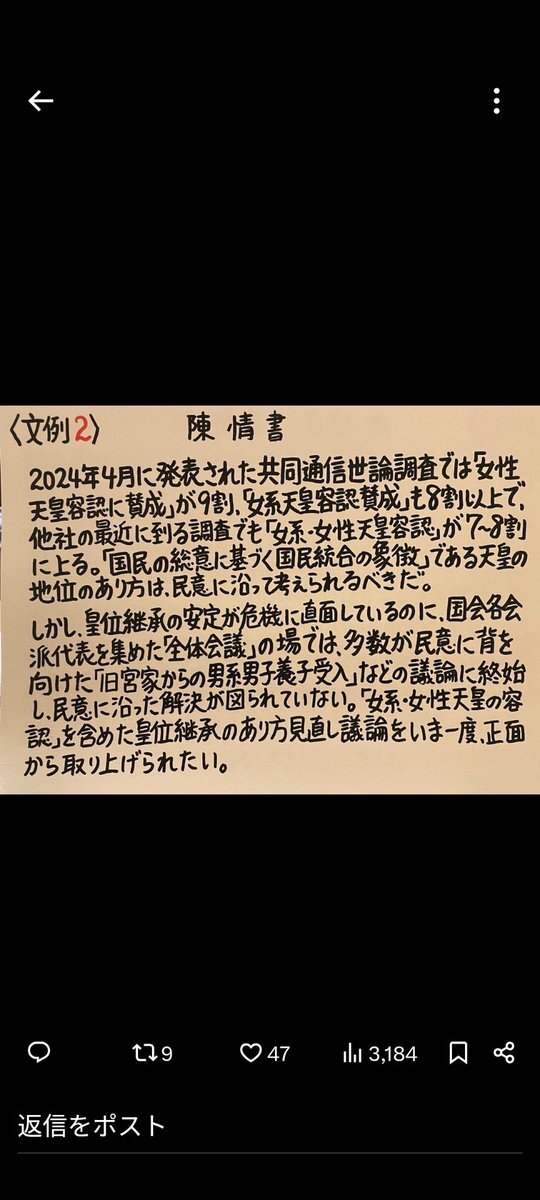 〈文例2〉 陳情書
2024年4月に発表された共同通信世論調査では「女性
天皇容認に賛成」が9割、「女系天皇容認賛成」も8割以上で、
他社の最近に到る調査でも「女系・女性天皇容認」が7〜8割
に上る。「国民の総意に基づく国民統合の象徴」である天皇の
地位のあり方は、民意に沿って考えられるべきだ。
しかし、皇位継承の安定が危機に直面しているのに、国会各会
派代表を集めた「全体会議」の場では、多数が民意に背を
向けた「旧宮家からの男系男子養子受入」などの議論に終始
し、民意に沿った解決が図られていない。「女系・女性天皇の容
認」を含めた皇位継承のあり方見直し議論をいま一度、正面
から取り上げられたい。
9 47 3,184
返信をポスト